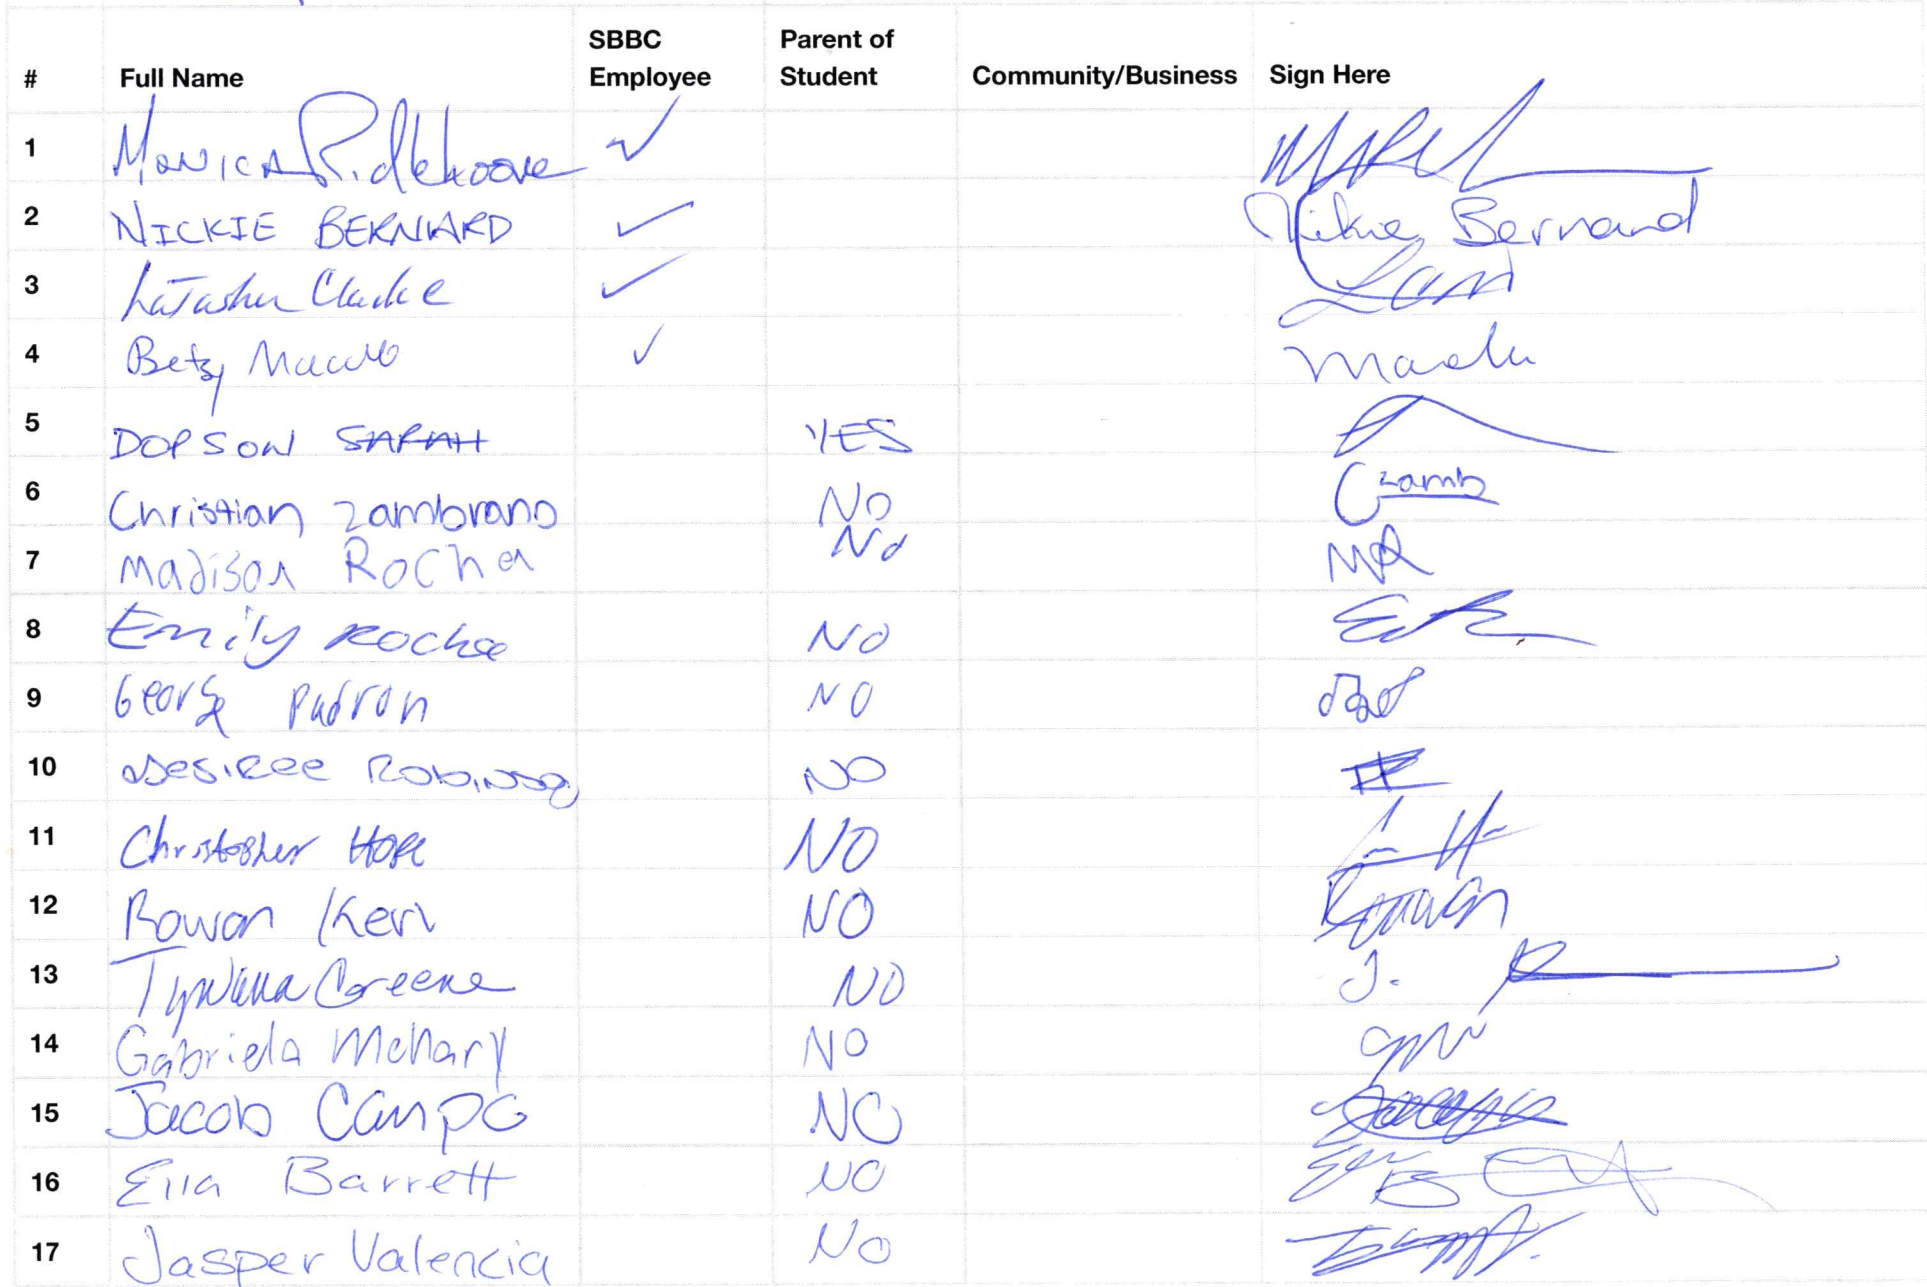 # Full Name SBBC Employee Parent of Student Community/Business Sign Here
1 Monica Ridlehoover
2 NICKIE BERNARD Nikie Bernard
3 LaTasha Clarke
4 Betsy
5 DOPSON SARAH YES
6 Christian Zambrano NO Czamb
7 Madison Rocha No MR
8 Emily Rocha NO
9 George Padron NO
10 Desiree Robinson NO
11 Christopher Hope NO
12 Rowan Kerr NO Rowan
13 Tywana Greene NO
14 Gabriela McHary NO
15 Jacob Campo NO
16 Ella Barrett NO
17 Jasper Valencia No